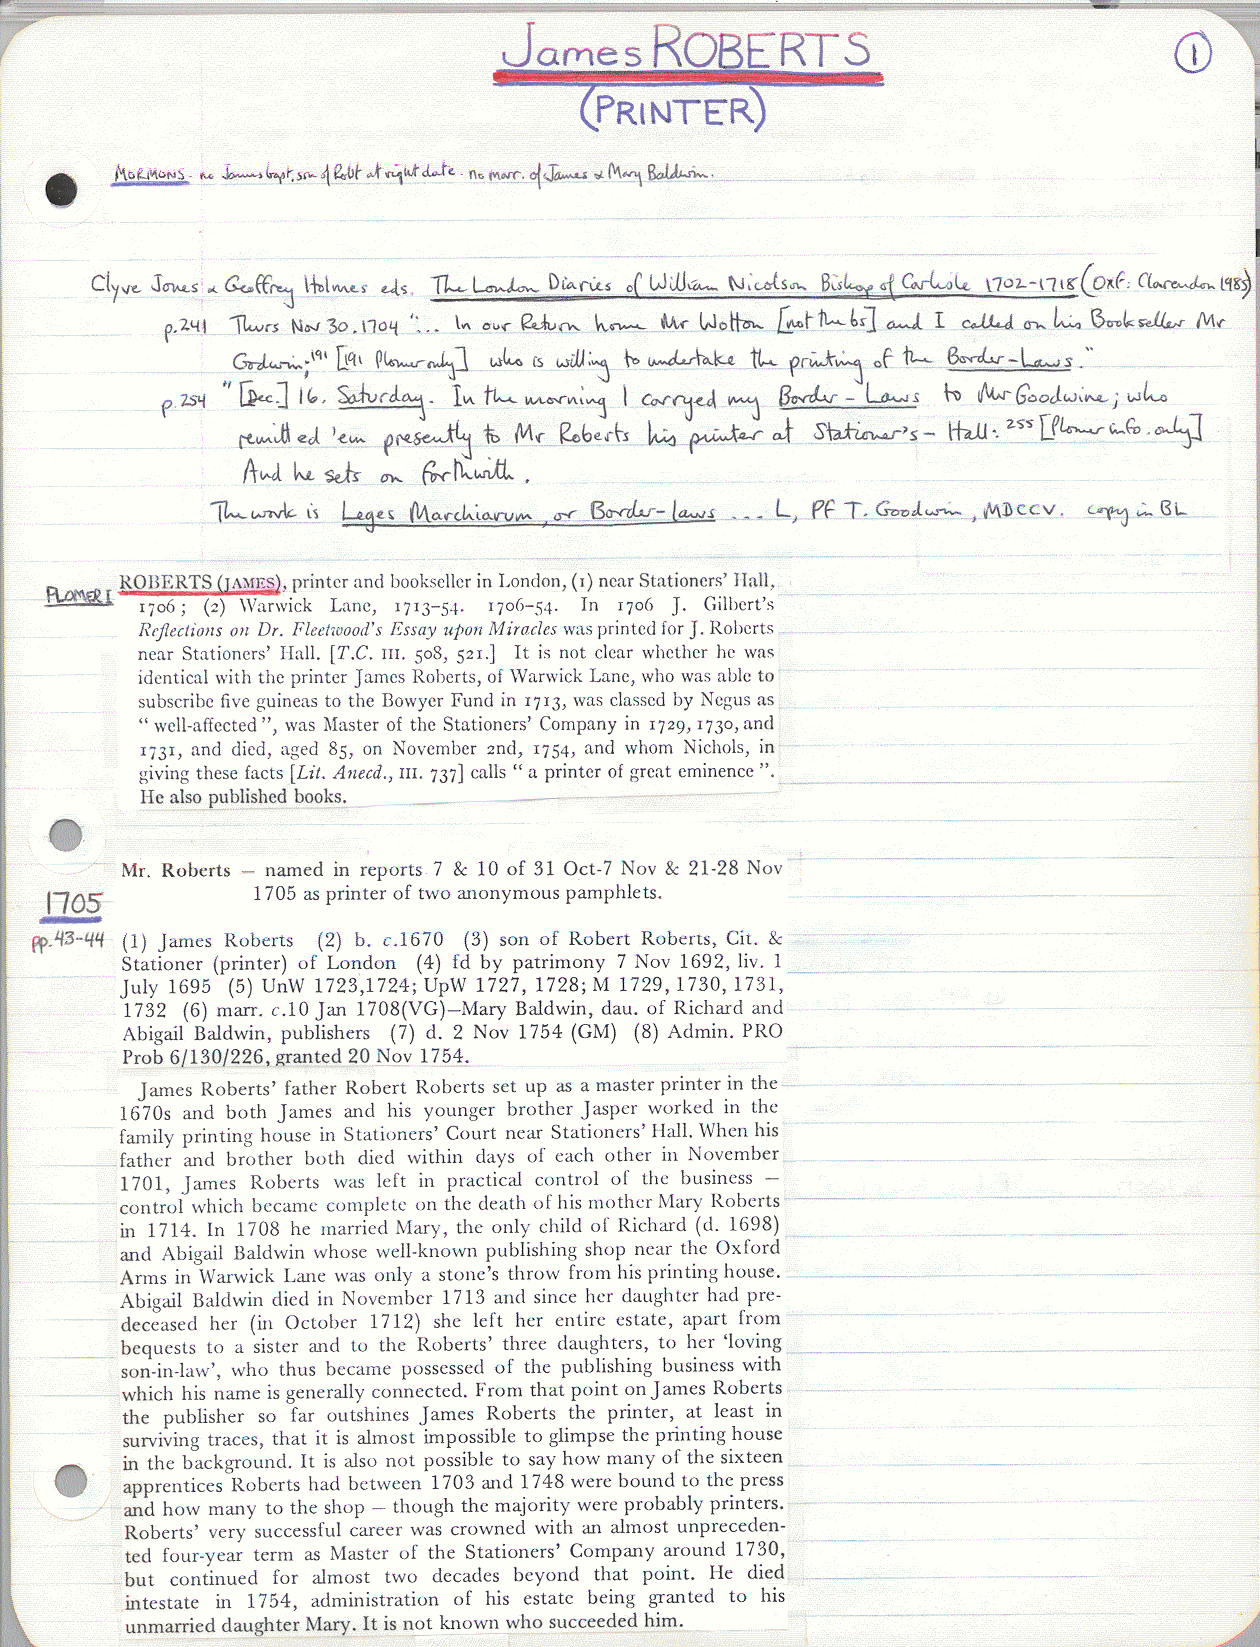 James ROBERTS
1
(PRINTER)
MORMONS - no James bapt. son of Robt at right date - no marr. of James & Mary Baldwin.
Clyve Jones & Geoffrey Holmes eds. The London Diaries of William Nicolson Bishop of Carlisle 1702-1718 (Oxf: Clarendon 1985)
p.241 Thurs Nov 30. 1704 "... In our Return home Mr Wotton [not the bs] and I called on his Bookseller Mr
Godwin;191 [191 Plomer only] who is willing to undertake the printing of the Border-Laws."
p.254 "[Dec.] 16. Saturday. In the morning I carryed my Border-Laws to Mr Goodwine; who
remitted 'em presently to Mr Roberts his printer at Stationer's-Hall: 255 [Plomer info. only]
And he sets on forthwith.
The work is Leges Marchiarum, or Border-laws ... L, PF T. Goodwin, MDCCV. copy in BL
PLOMER I
ROBERTS (JAMES), printer and bookseller in London, (1) near Stationers' Hall,
1706; (2) Warwick Lane, 1713-54. 1706-54. In 1706 J. Gilbert's
Reflections on Dr. Fleetwood's Essay upon Miracles was printed for J. Roberts
near Stationers' Hall. [T.C. III. 508, 521.] It is not clear whether he was
identical with the printer James Roberts, of Warwick Lane, who was able to
subscribe five guineas to the Bowyer Fund in 1713, was classed by Negus as
"well-affected", was Master of the Stationers' Company in 1729, 1730, and
1731, and died, aged 85, on November 2nd, 1754, and whom Nichols, in
giving these facts [Lit. Anecd., III. 737] calls "a printer of great eminence".
He also published books.
Mr. Roberts — named in reports 7 & 10 of 31 Oct-7 Nov & 21-28 Nov
1705 as printer of two anonymous pamphlets.
1705
pp.43-44
(1) James Roberts (2) b. c.1670 (3) son of Robert Roberts, Cit. &
Stationer (printer) of London (4) fd by patrimony 7 Nov 1692, liv. 1
July 1695 (5) UnW 1723,1724; UpW 1727, 1728; M 1729, 1730, 1731,
1732 (6) marr. c.10 Jan 1708(VG)—Mary Baldwin, dau. of Richard and
Abigail Baldwin, publishers (7) d. 2 Nov 1754 (GM) (8) Admin. PRO
Prob 6/130/226, granted 20 Nov 1754.
James Roberts' father Robert Roberts set up as a master printer in the
1670s and both James and his younger brother Jasper worked in the
family printing house in Stationers' Court near Stationers' Hall. When his
father and brother both died within days of each other in November
1701, James Roberts was left in practical control of the business —
control which became complete on the death of his mother Mary Roberts
in 1714. In 1708 he married Mary, the only child of Richard (d. 1698)
and Abigail Baldwin whose well-known publishing shop near the Oxford
Arms in Warwick Lane was only a stone's throw from his printing house.
Abigail Baldwin died in November 1713 and since her daughter had pre-
deceased her (in October 1712) she left her entire estate, apart from
bequests to a sister and to the Roberts' three daughters, to her 'loving
son-in-law', who thus became possessed of the publishing business with
which his name is generally connected. From that point on James Roberts
the publisher so far outshines James Roberts the printer, at least in
surviving traces, that it is almost impossible to glimpse the printing house
in the background. It is also not possible to say how many of the sixteen
apprentices Roberts had between 1703 and 1748 were bound to the press
and how many to the shop — though the majority were probably printers.
Roberts' very successful career was crowned with an almost unpreceden-
ted four-year term as Master of the Stationers' Company around 1730,
but continued for almost two decades beyond that point. He died
intestate in 1754, administration of his estate being granted to his
unmarried daughter Mary. It is not known who succeeded him.